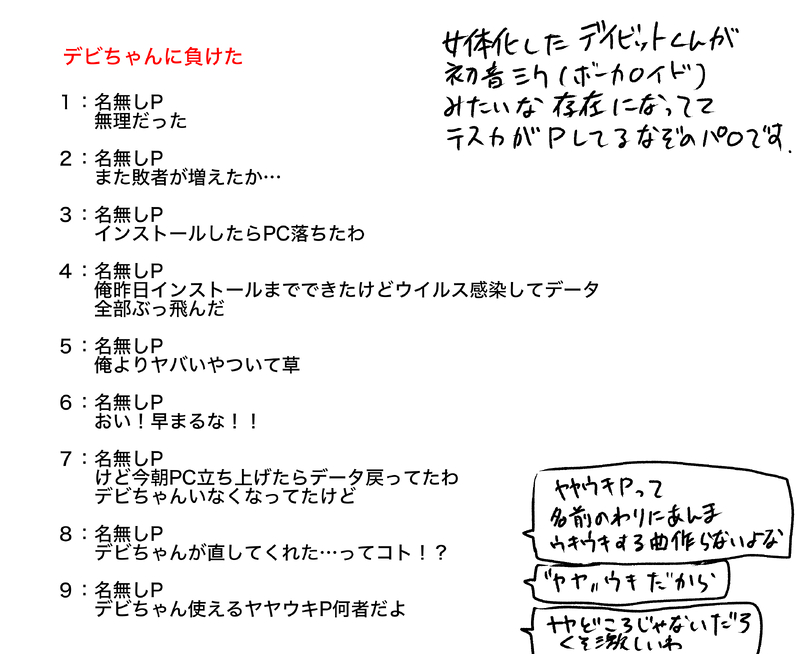 デビちゃんに負けた
女体化したデイビットくんが
初音ミク(ボーカロイド)
みたいな存在になってて
テスカがPしてるなぞのパロです.
1：名無しP
無理だった
2：名無しP
また敗者が増えたか…
3：名無しP
インストールしたらPC落ちたわ
4：名無しP
俺昨日インストールまでできたけどウイルス感染してデータ
全部ぶっ飛んだ
5：名無しP
俺よりヤバいやついて草
6：名無しP
おい！早まるな！！
7：名無しP
けど今朝PC立ち上げたらデータ戻ってたわ
デビちゃんいなくなってたけど
8：名無しP
デビちゃんが直してくれた…ってコト！？
9：名無しP
デビちゃん使えるヤヤウキP何者だよ
ヤヤウキPって
名前のわりにあんま
ウキウキする曲作らないよな
"ヤヤ"ウキだから
ヤヤどころじゃないだろ
くそ激しいわ